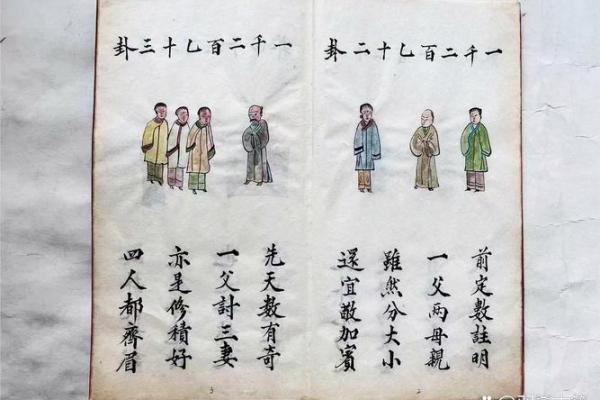 一千二百七十二卦
前定數註明
一父兩母親
雖然分大小
還宜敬加賓
一千二百七十三卦
先天數有奇
一父討三妻
亦是修積好
四人都齊眉